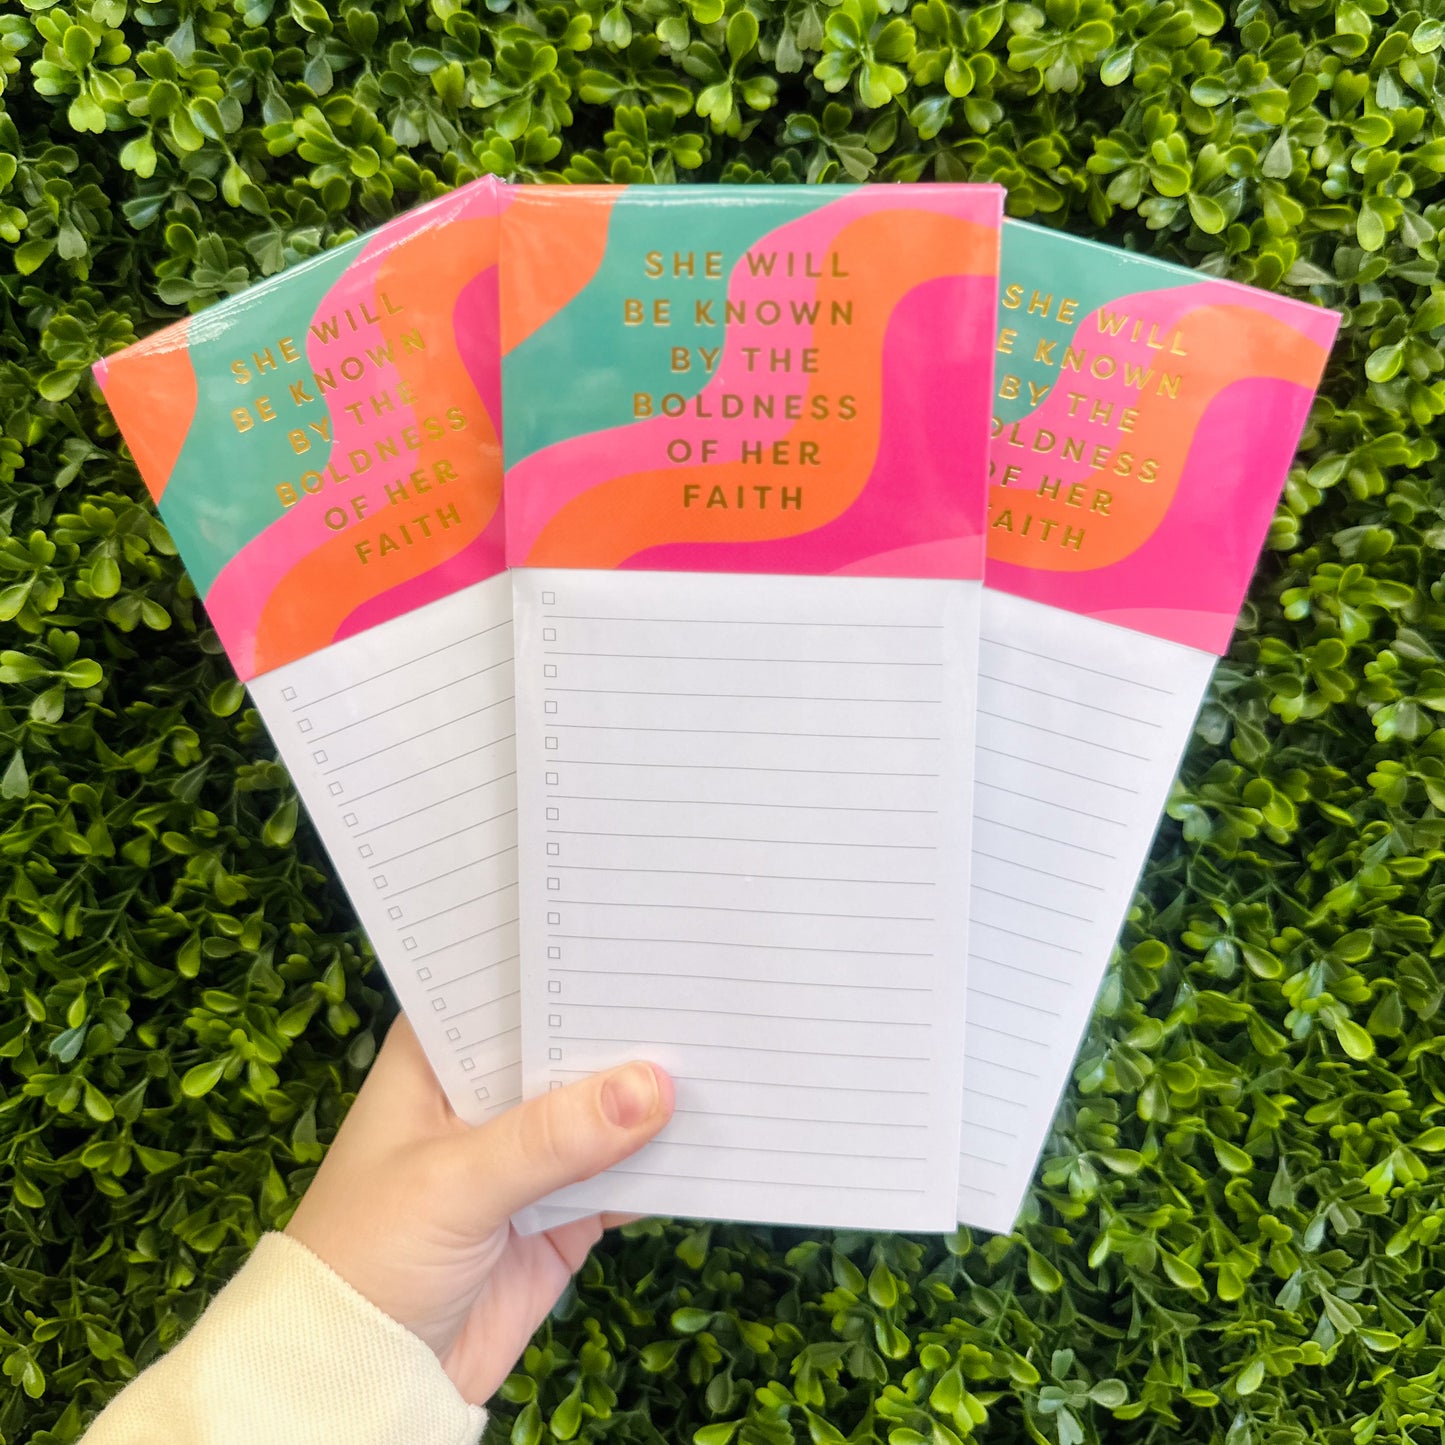 SHE WILL
BE KNOWN
BY THE
BOLDNESS
OF HER
FAITH
SHE WILL
BE KNOWN
BY THE
BOLDNESS
OF HER
FAITH
SHE WILL
E KNOWN
BY THE
OLDNESS
OF HER
FAITH